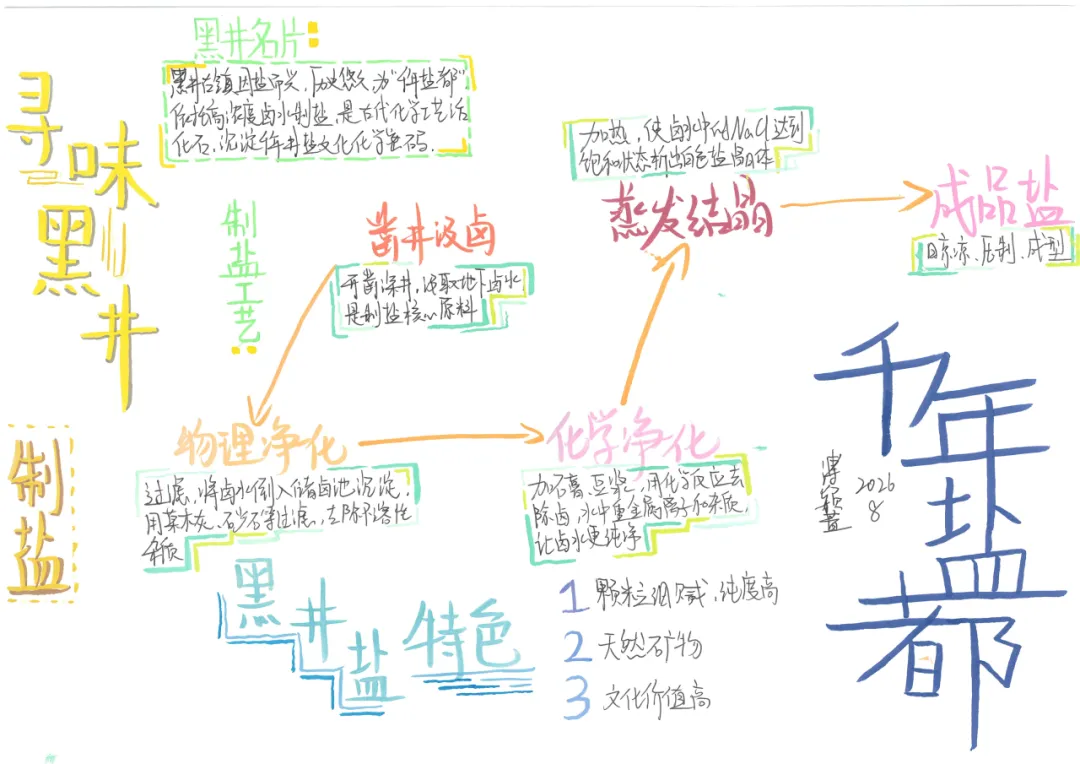 寻味黑井
制盐
黑井名片:
黑井古镇因盐而兴,历史悠久,为“千年盐都”.
依托高浓度卤水制盐,是古代化学工艺活
化石,沉淀千年井盐文化化学密码.
制盐工艺:
凿井汲卤
开凿深井,汲取地下卤水
是制盐核心原料
物理净化
过滤,将卤水倒入储卤池沉淀,
用草木灰、砂石等过滤,去除不溶性
杂质
化学净化
加石膏、豆浆,用化学反应去
除卤水中重金属离子和杂质,
让卤水更纯净
蒸发结晶
加热,使卤水中的NaCl达到
饱和状态析出白色盐晶体
成品盐
晾凉、压制、成型
黑井盐特色
1 颗粒细腻、纯度高
2 天然矿物
3 文化价值高
千年盐都
2026
8